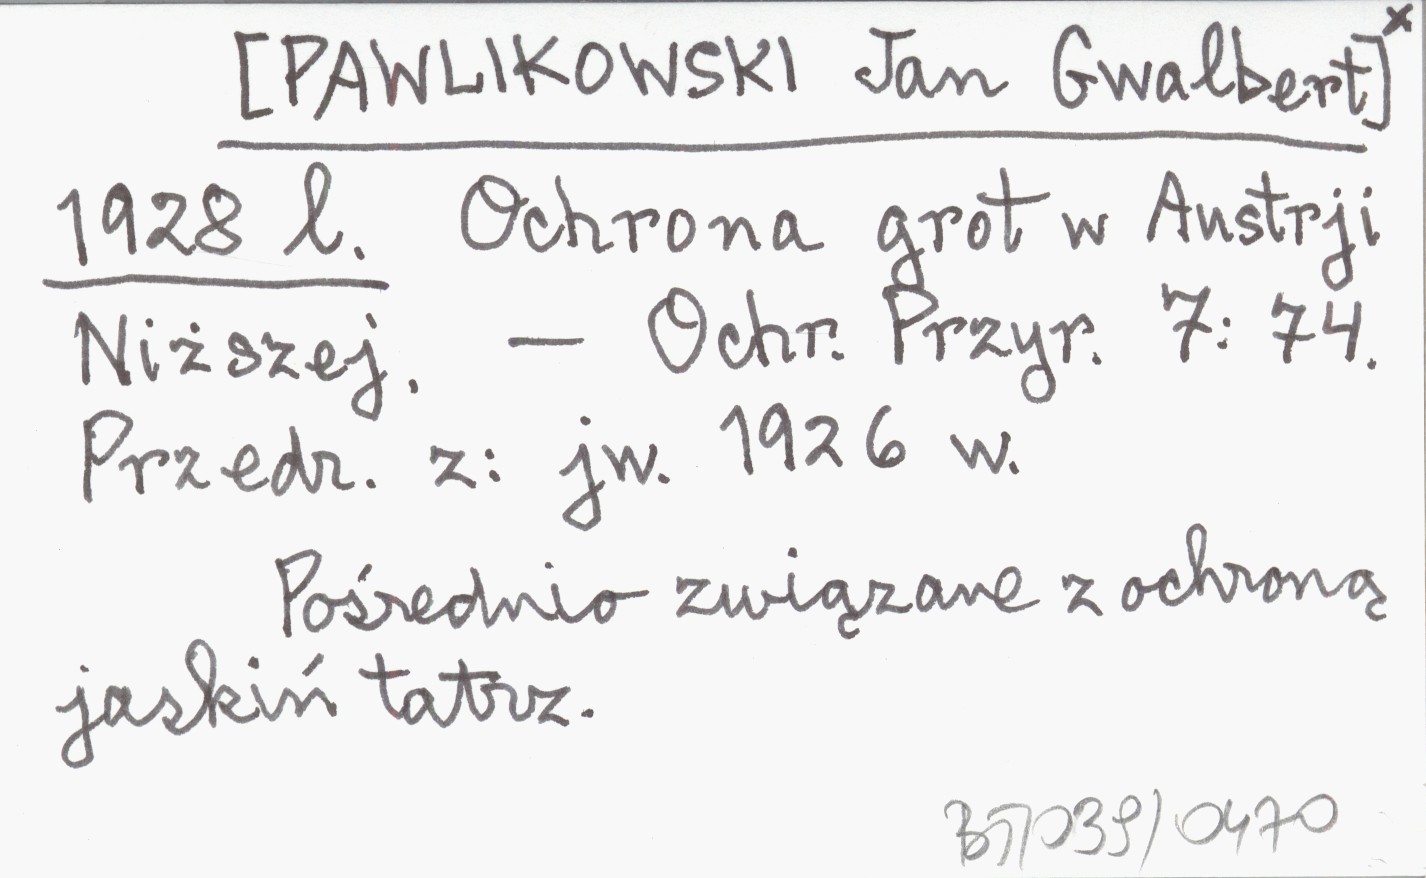 [PAWLIKOWSKI Jan Gwalbert]x
1928 l. Ochrona grot w Austrji
Niższej. — Ochr. Przyr. 7: 74.
Przedr. z: jw. 1926 w.
Pośrednio związane z ochroną
jaskiń tatrz.
BT/039/0470